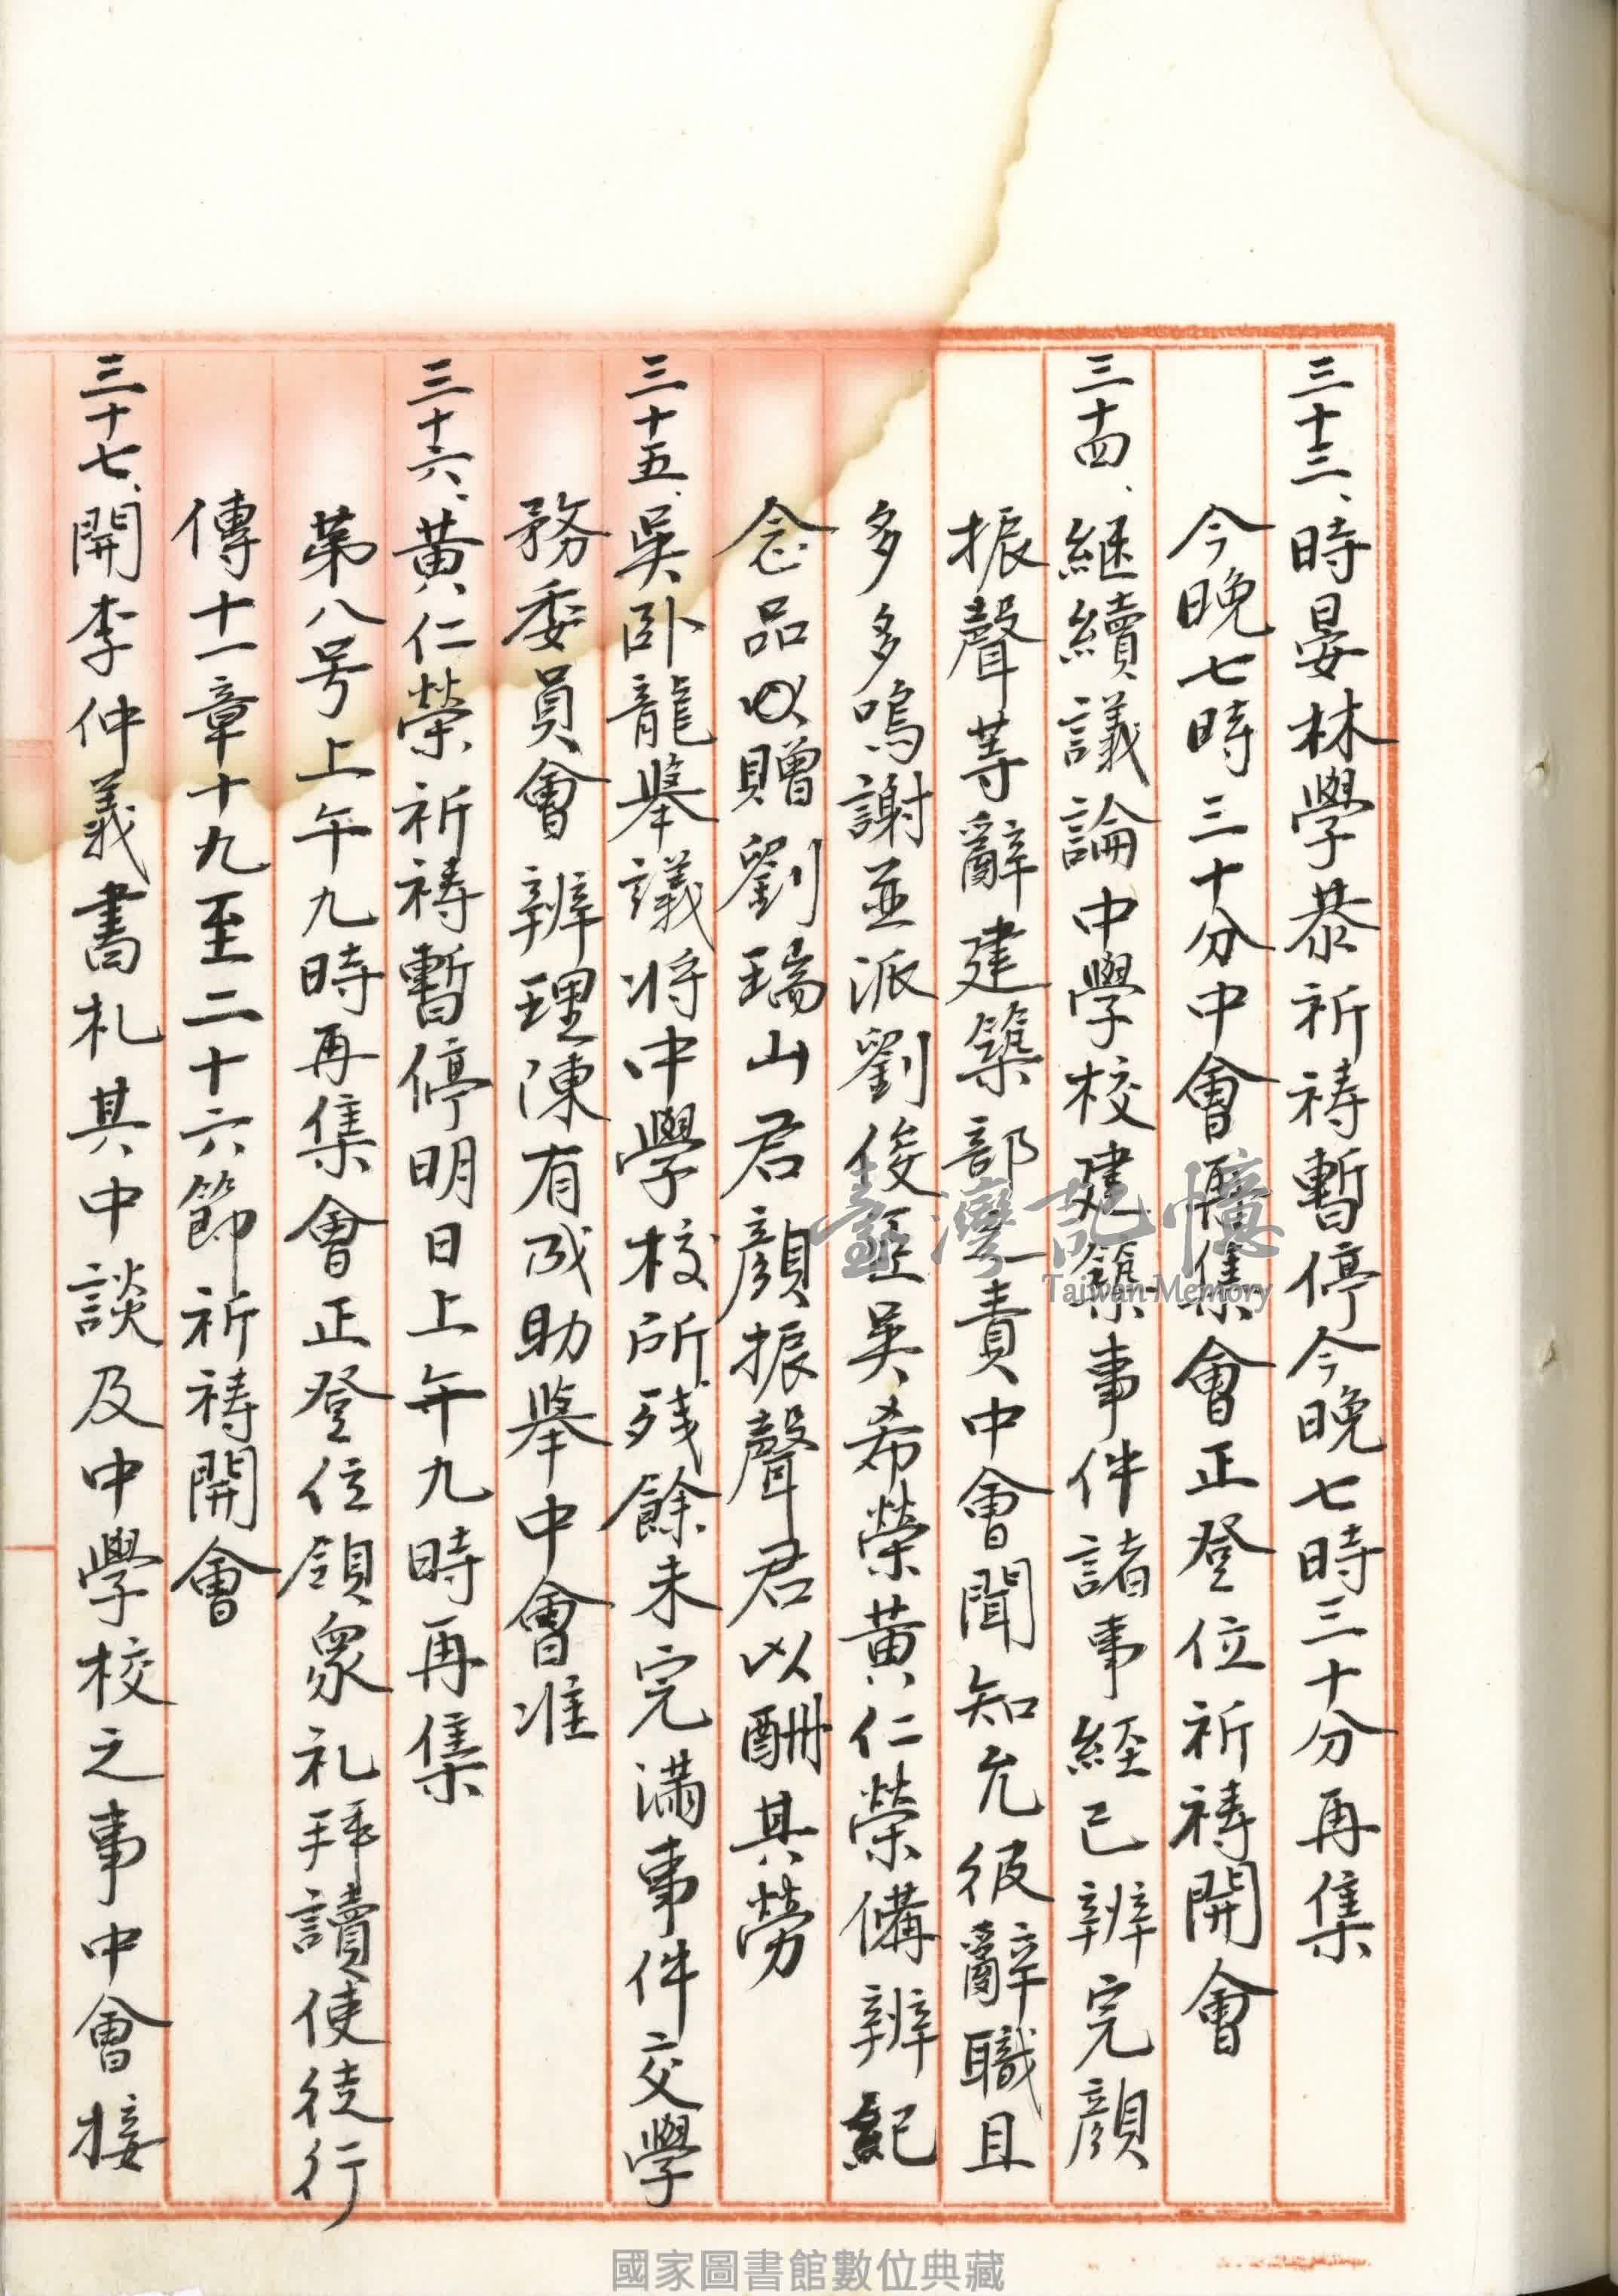 三十三、時晏林學恭祈禱暫停今晚七時三十分再集
今晚七時三十分中會再集會正登位祈禱開會
三十四、継續議論中學校建築事件諸事經已辨完顏
振聲等辭建築部之責中會聞知允彼辭職且
多多鳴謝並派劉俊臣吳希榮黃仁榮備辨紀
念品以贈劉瑞山君顏振聲君以酬其勞
三十五、吳卧龍舉議将中學校所残餘未完滿事件交學
務委員會辨理陳有成助舉中會准
三十六、黃仁榮祈禱暫停明日上午九時再集
第八号上午九時再集會正登位領衆礼拜讀使徒行
傳十一章十九至二十六節祈禱開會
三十七、開李仲義書札其中談及中學校之事中會接
臺灣記憶
Taiwan Memory
國家圖書館數位典藏